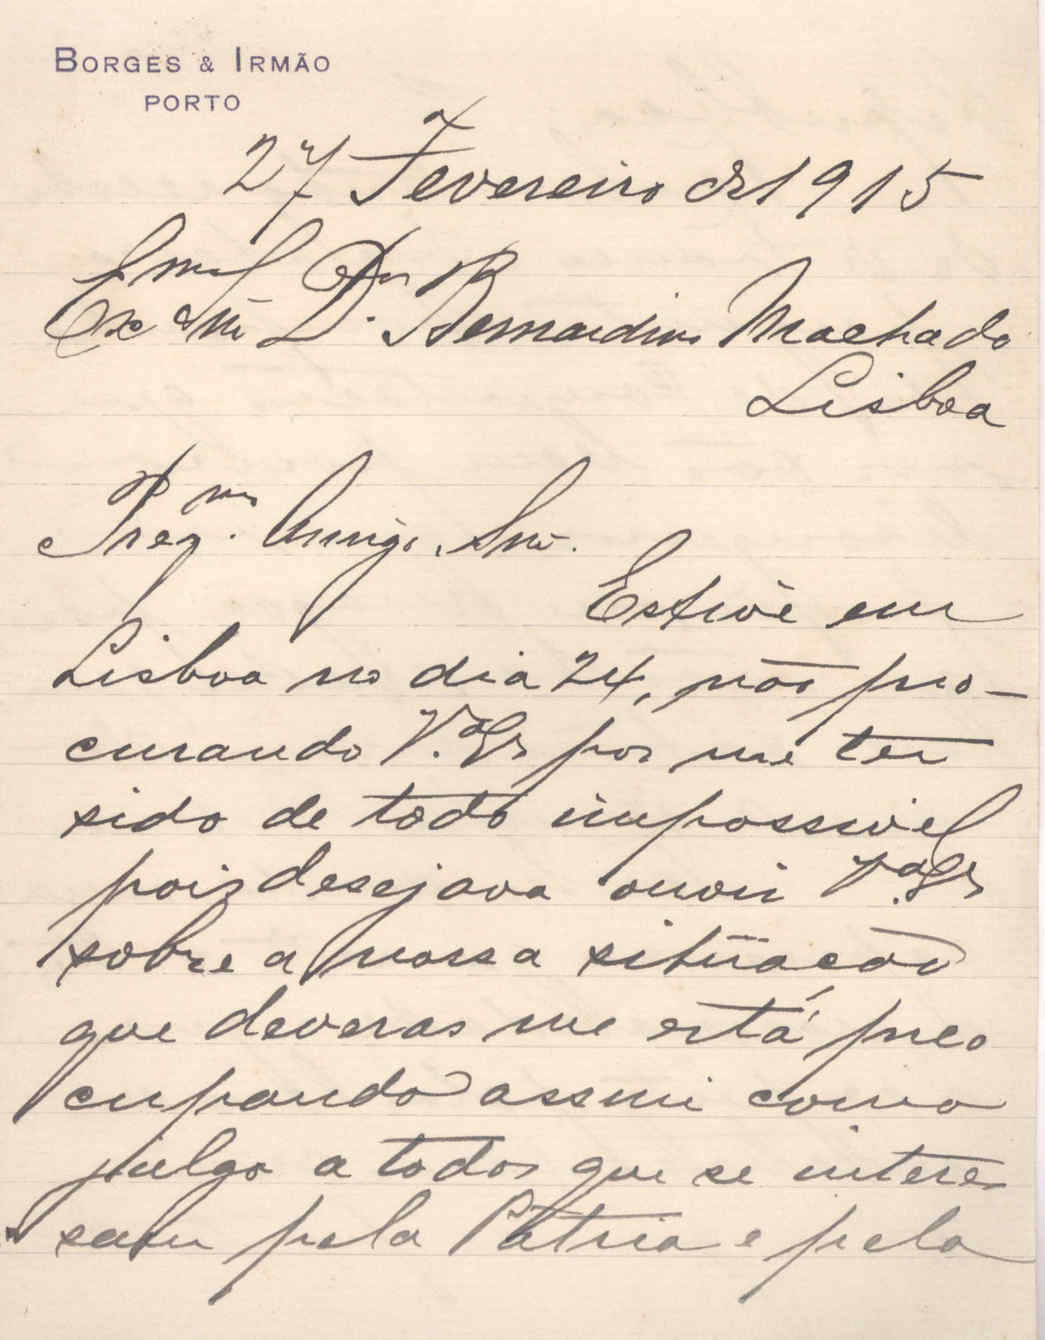 BORGES & IRMÃO
PORTO
27 Fevereiro de 1915
Exmo Snr Dr. Bernardino Machado
Lisboa
Prezmo. Amigo Snr.
Estive em
Lisboa no dia 24, não pro-
curando V. Ex por me ter
sido de todo impossivel
pois desejava ouvir V. Ex
sobre a nossa situação
que deveras me está preo
cupando assim como
julgo a todos que se interes
sam pela Patria e pela